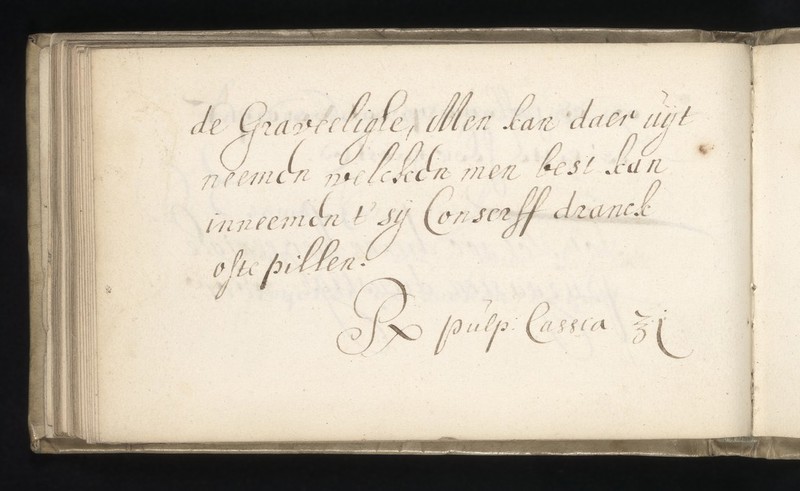 de Graveeligle, Men kan daer uÿt
neemen welcken men best kan
inneemen t' sÿ Conserff dranck
ofte pillen.
℞ pulp: Cassia ʒj